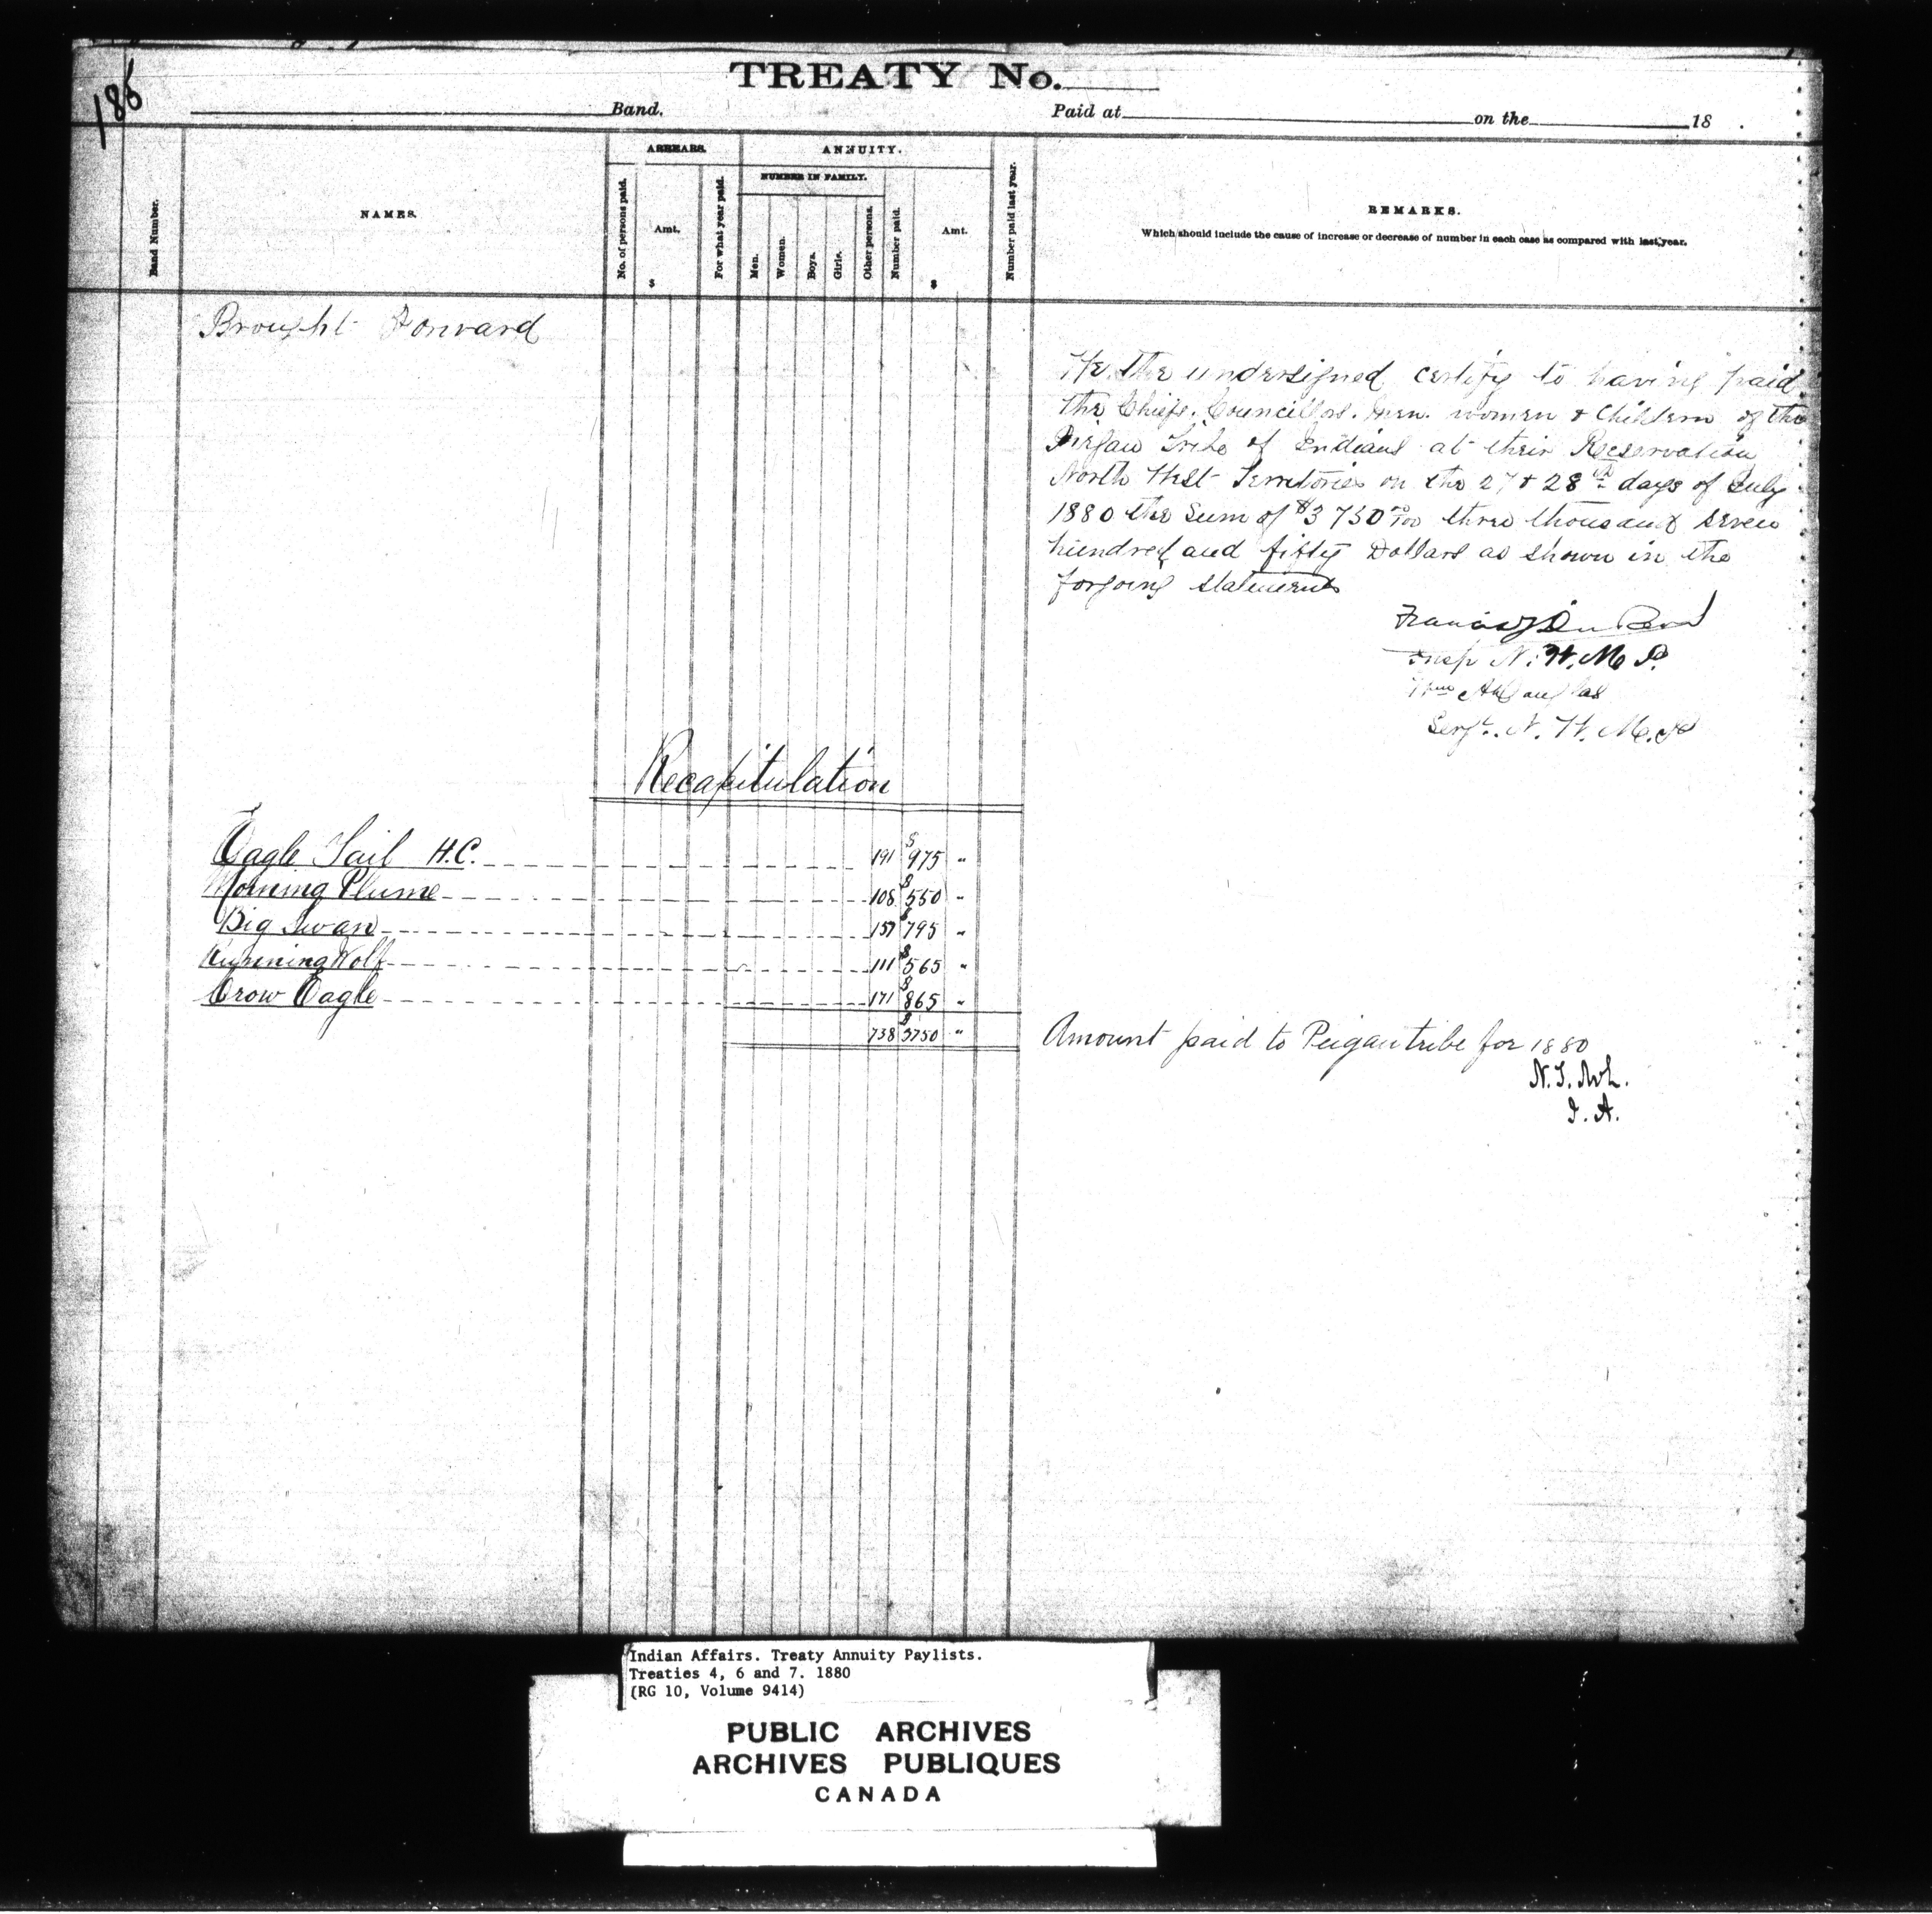 186
TREATY No.
Band. Paid at on the 18 .
Band Number.
NAMES.
ARREARS.
No. of persons paid.
Amt.
$
For what year paid.
ANNUITY.
NUMBER IN FAMILY.
Men.
Women.
Boys.
Girls.
Other persons.
Number paid.
Amt.
$
Number paid last year.
REMARKS.
Which should include the cause of increase or decrease of number in each case as compared with last year.
Brought Forward
We the undersigned certify to having paid
the Chiefs. Councillors. Men. women & Children of the
Tribe of Indians at their Reservation
North West Territories on the 27 & 28th days of July
1880 the Sum of $3750 00/100 three thousand seven
hundred and fifty Dollars as shown in the
forgoing statements
Francis
Insp N. W. M. P.
Wm A Douglas
Sergt. N. W. M. P
Recapitulation
Eagle Tail H.C. 191 $975 "
Morning Plume 108 $550 "
Big Swan 157 $795 "
Running Wolf 111 $565 "
Crow Eagle 171 $865 "
738 $3750 "
Amount paid to Peigan tribe for 1880
I. A.
Indian Affairs. Treaty Annuity Paylists.
Treaties 4, 6 and 7. 1880
(RG 10, Volume 9414)
PUBLIC ARCHIVES
ARCHIVES PUBLIQUES
CANADA